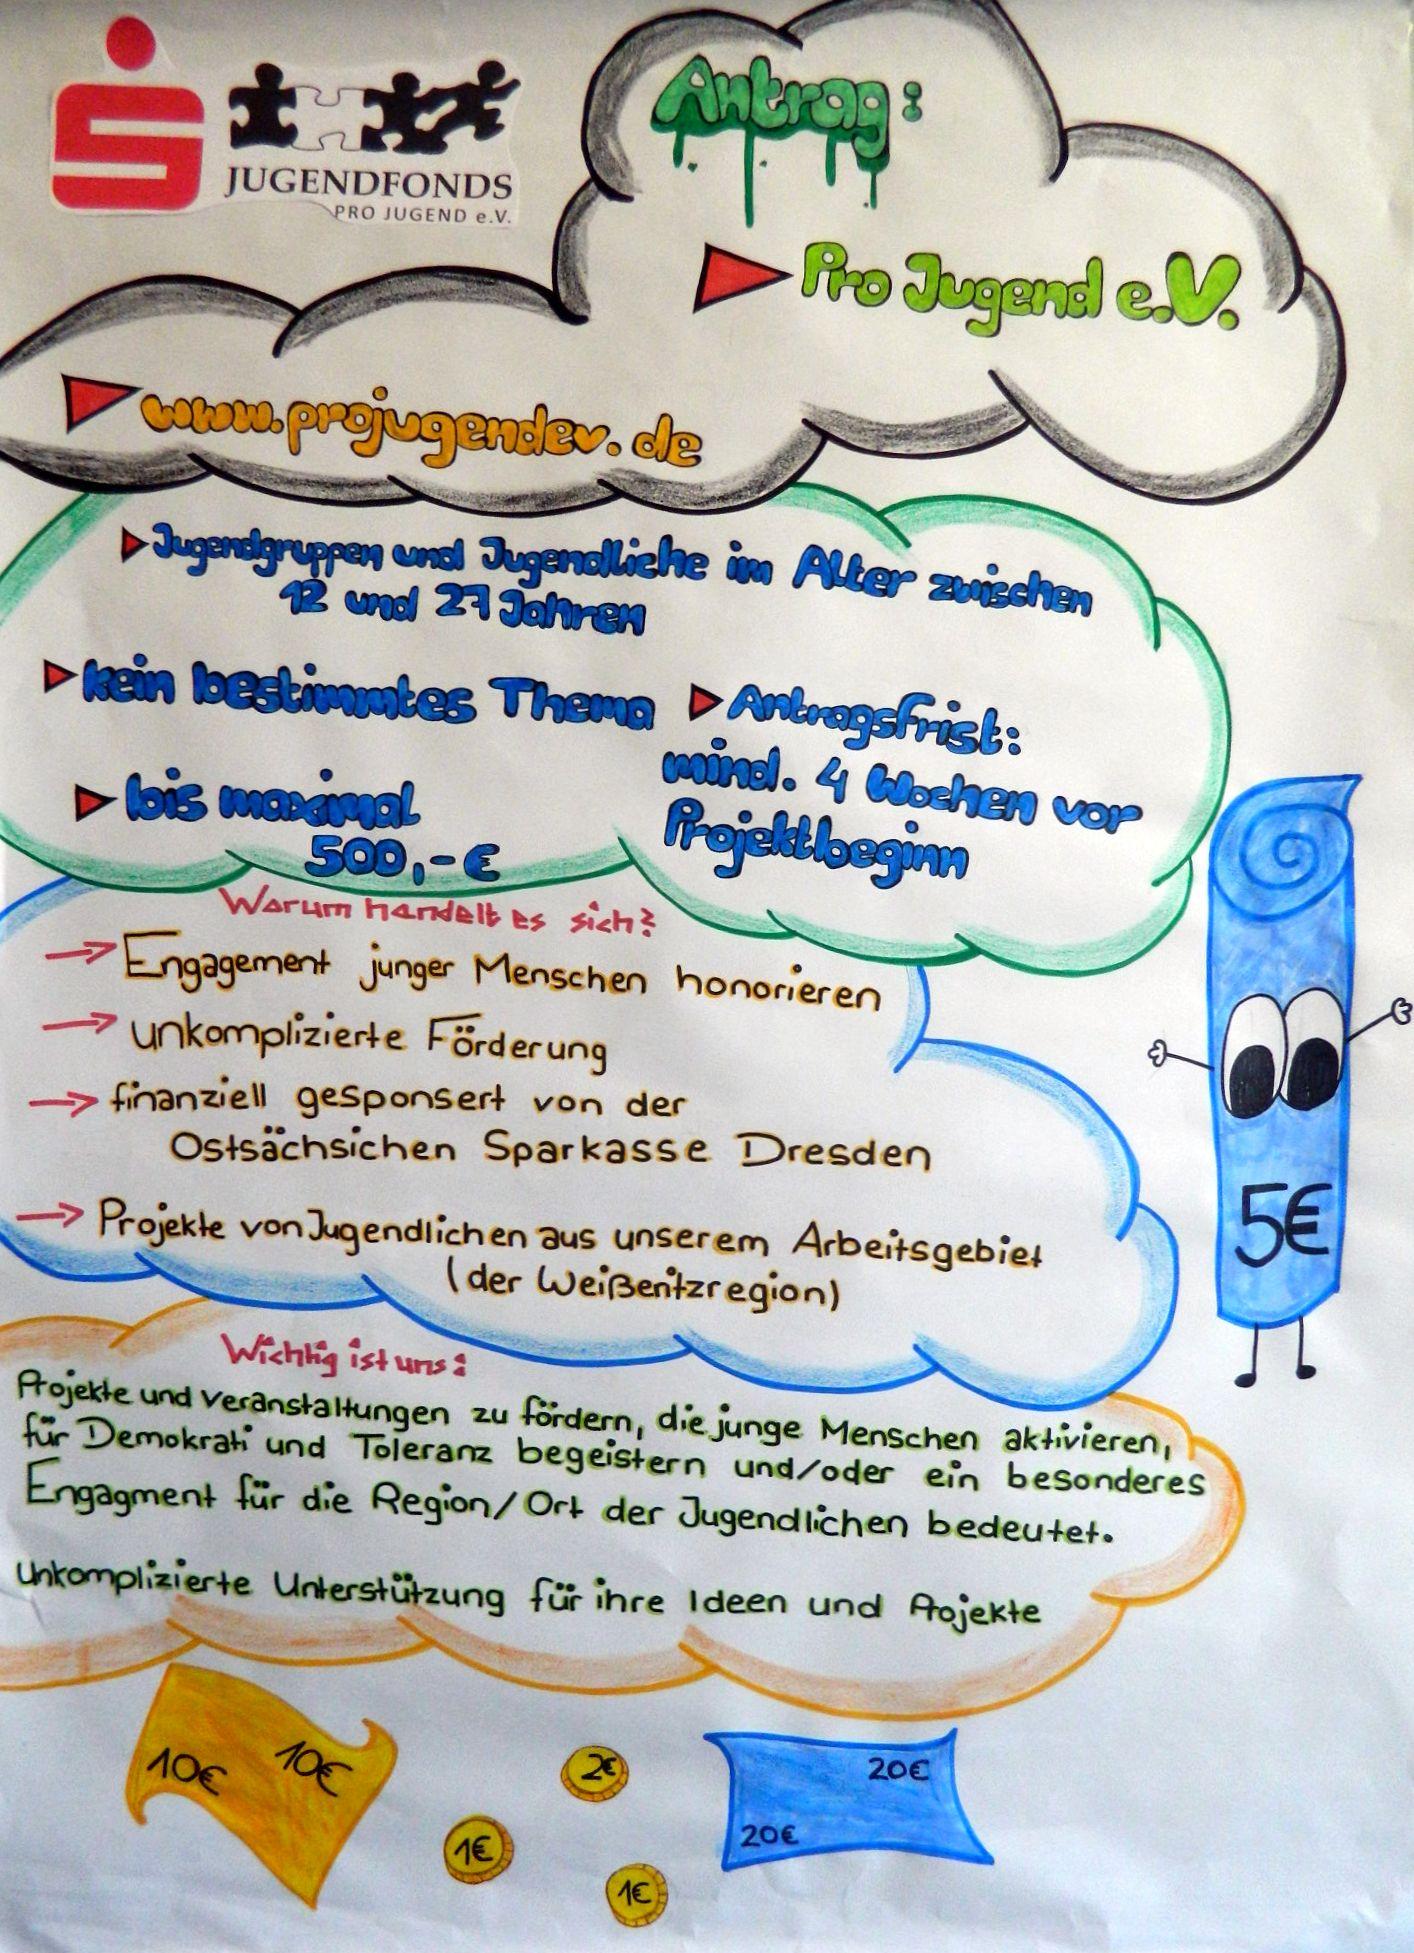 JUGENDFONDS
PRO JUGEND e.V.
Antrag:
Pro Jugend e.V.
www.projugendev.de
Jugendgruppen und Jugendliche im Alter zwischen
12 und 27 Jahren
kein bestimmtes Thema
Antragsfrist:
mind. 4 Wochen vor
Projektbeginn
bis maximal
500,-€
Warum handelt es sich?
Engagement junger Menschen honorieren
unkomplizierte Förderung
finanziell gesponsert von der
Ostsächsichen Sparkasse Dresden
Projekte von Jugendlichen aus unserem Arbeitsgebiet
(der Weißeritzregion)
5€
Wichtig ist uns:
Projekte und Veranstaltungen zu fördern, die junge Menschen aktivieren,
für Demokrati und Toleranz begeistern und/oder ein besonderes
Engagment für die Region/Ort der Jugendlichen bedeutet.
Unkomplizierte Unterstützung für ihre Ideen und Projekte
10€ 10€
2€
1€
1€
20€
20€